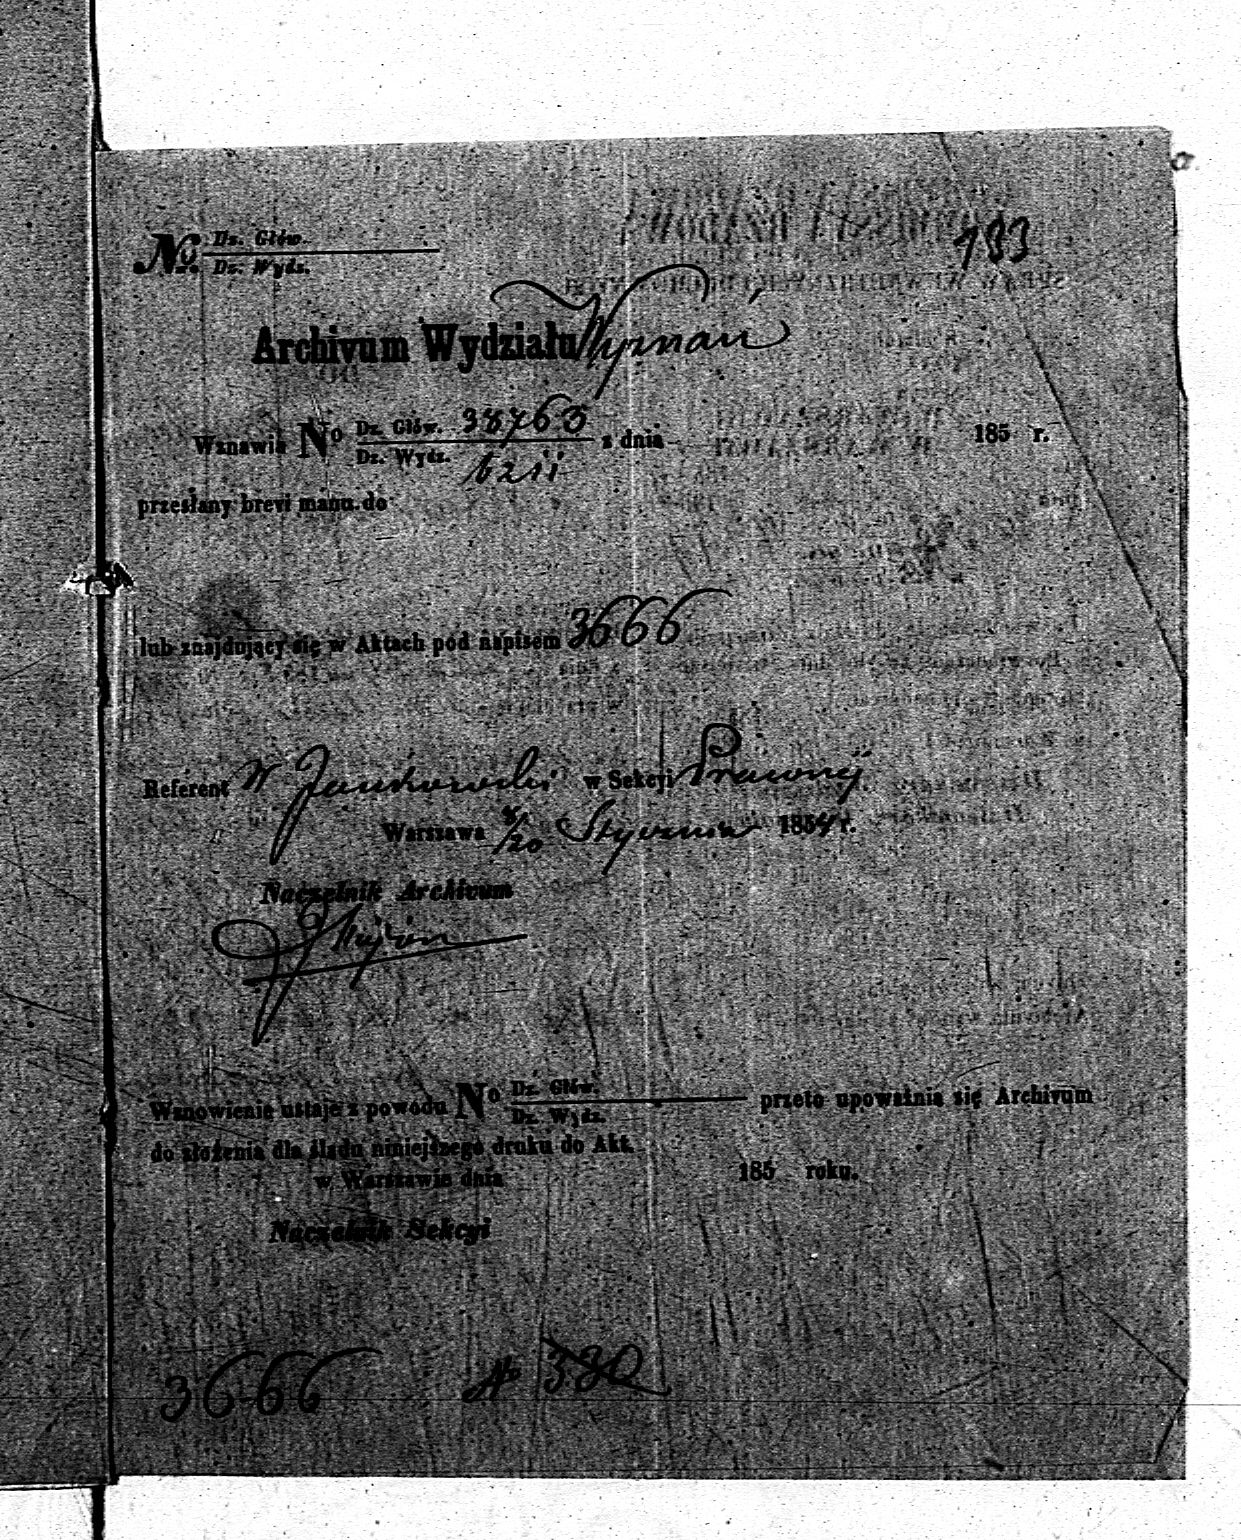 193
No. Dz. Głów.
Dz. Wydz.
Archivum Wydziału Wyznań
Wznawia No Dz. Głów. 38763 z dnia 185 r.
Dz. Wydz. 6211
przesłany brevi manu do
lub znajdujący się w Aktach pod napisem 3666
Referent W Jankowski w Sekcyi Prawnéj
Warszawa 8/20 Stycznia 1854 r.
Naczelnik Archivum
Wznowienie ustaje z powodu No Dz. Głów. przeto upoważnia się Archivum
Dz. Wydz.
do złożenia dla śladu niniejszego druku do Akt.
w Warszawie dnia 185 roku.
Naczelnik Sekcyi
3666 No 330